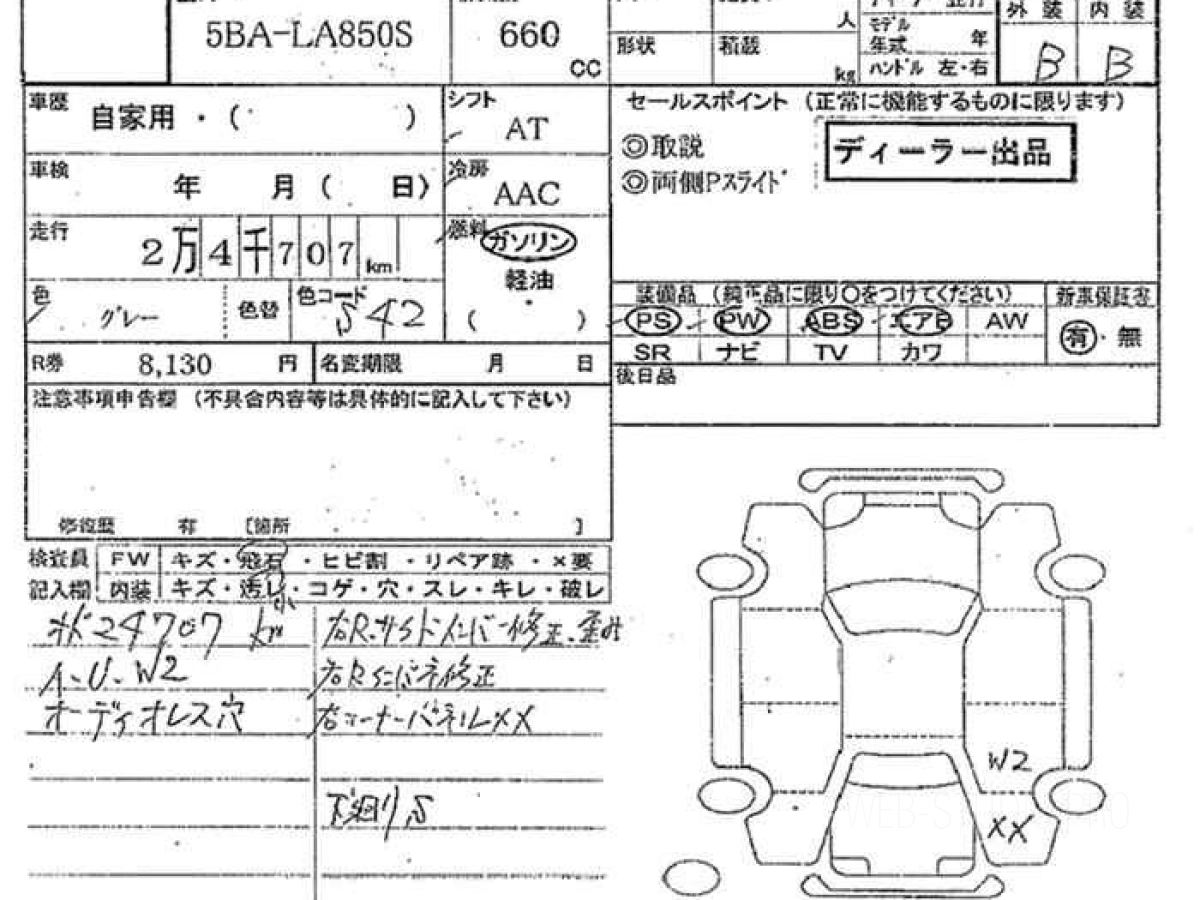 5BA-LA850S
660
CC
人
形状
積載
kg
モデル
年式
年
ハンドル 左・右
外装
内装
B
B
車歴
自家用・( )
シフト
AT
車検
年 月 ( 日)
冷房
AAC
走行
2万4千707km
燃料
ガソリン
軽油
( )
色
グレー
色替
色コード
S42
R券
8,130
円
名変期限
月
日
セールスポイント (正常に機能するものに限ります)
◎取説
◎両側Pスライド
ディーラー出品
装備品 (純正品に限り〇をつけてください)
新車保証書
PS
PW
ABS
エアB
AW
SR
ナビ
TV
カワ
有・無
後日品
注意事項申告欄 (不具合内容等は具体的に記入して下さい)
修復歴 有 [箇所 ]
検査員
記入欄
FW
キズ・飛石・ヒビ割・リペア跡・×要
内装
キズ・汚レ・コゲ・穴・スレ・キレ・破レ
小
24707 km
A-U-W2
オーディオレス穴
右R.サイドメンバー修正、歪み
右Rインパネ修正
右コーナーパネルXX
下廻りS
W2
XX